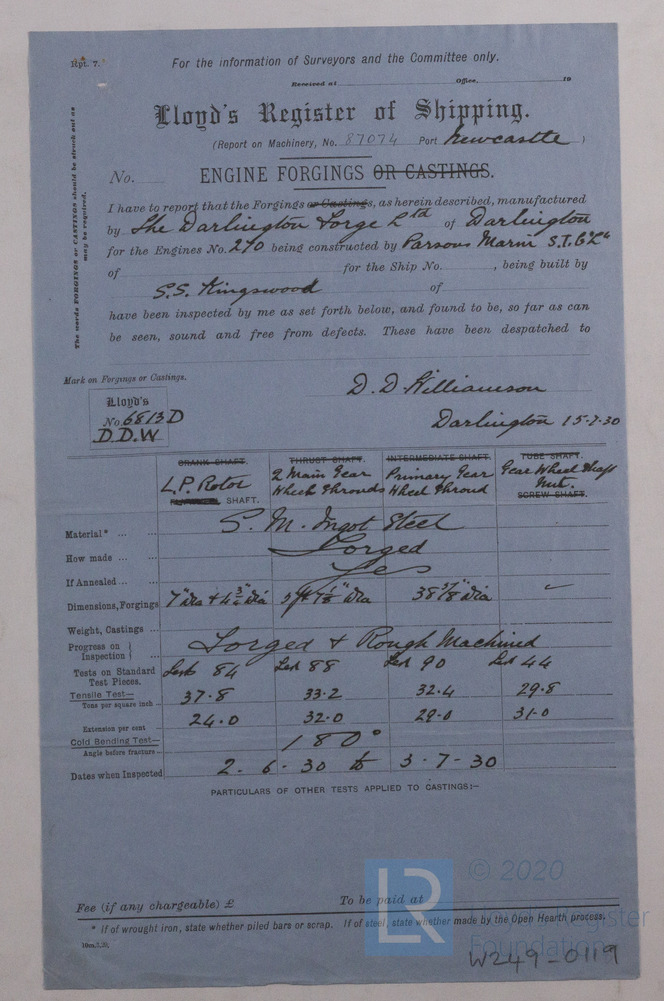 Rpt. 7.
For the information of Surveyors and the Committee only.
Received at Office. 19
Lloyd's Register of Shipping.
(Report on Machinery, No. 87074 Port Newcastle )
No. ENGINE FORGINGS OR CASTINGS.
The words FORGINGS or CASTINGS should be struck out as may be required.
I have to report that the Forgings or Castings, as herein described, manufactured
by The Darlington Forge Ltd of Darlington
for the Engines No. 270 being constructed by Parsons Marine S.T. Co Ld
of for the Ship No. , being built by
S.S. Kingswood of
have been inspected by me as set forth below, and found to be, so far as can
be seen, sound and free from defects. These have been despatched to
Mark on Forgings or Castings.
D. D. Williamson
Lloyd's
No. 6813 D
D.D.W.
Darlington 15-7-30
CRANK SHAFT. THRUST SHAFT. INTERMEDIATE SHAFT. TUBE SHAFT.
L.P. Rotor 2 Main Gear Primary Gear Gear Wheel Shaft
SHAFT. Wheel Shrouds Wheel Shroud Nut.
SCREW SHAFT.
Material* ... S. M. Ingot Steel
How made ... Forged
If Annealed ... Yes
Dimensions, Forgings 7" dia dia dia 38 5/8" dia
Weight, Castings ...
Progress on Inspection Forged & Rough Machined
Tests on Standard Test Pieces. 84 88 90 44
Tensile Test— Tons per square inch 37.8 33.2 32.4 29.8
Extension per cent 24.0 32.0 29.0 31.0
Cold Bending Test— Angle before fracture 180°
Dates when Inspected 2. 6. 30 to 3-7-30
PARTICULARS OF OTHER TESTS APPLIED TO CASTINGS:—
Fee (if any chargeable) £ To be paid at
* If of wrought iron, state whether piled bars or scrap. If of steel, state whether made by the Open Hearth process.
© 2020
LR
Lloyd's Register
Foundation
W249-0119